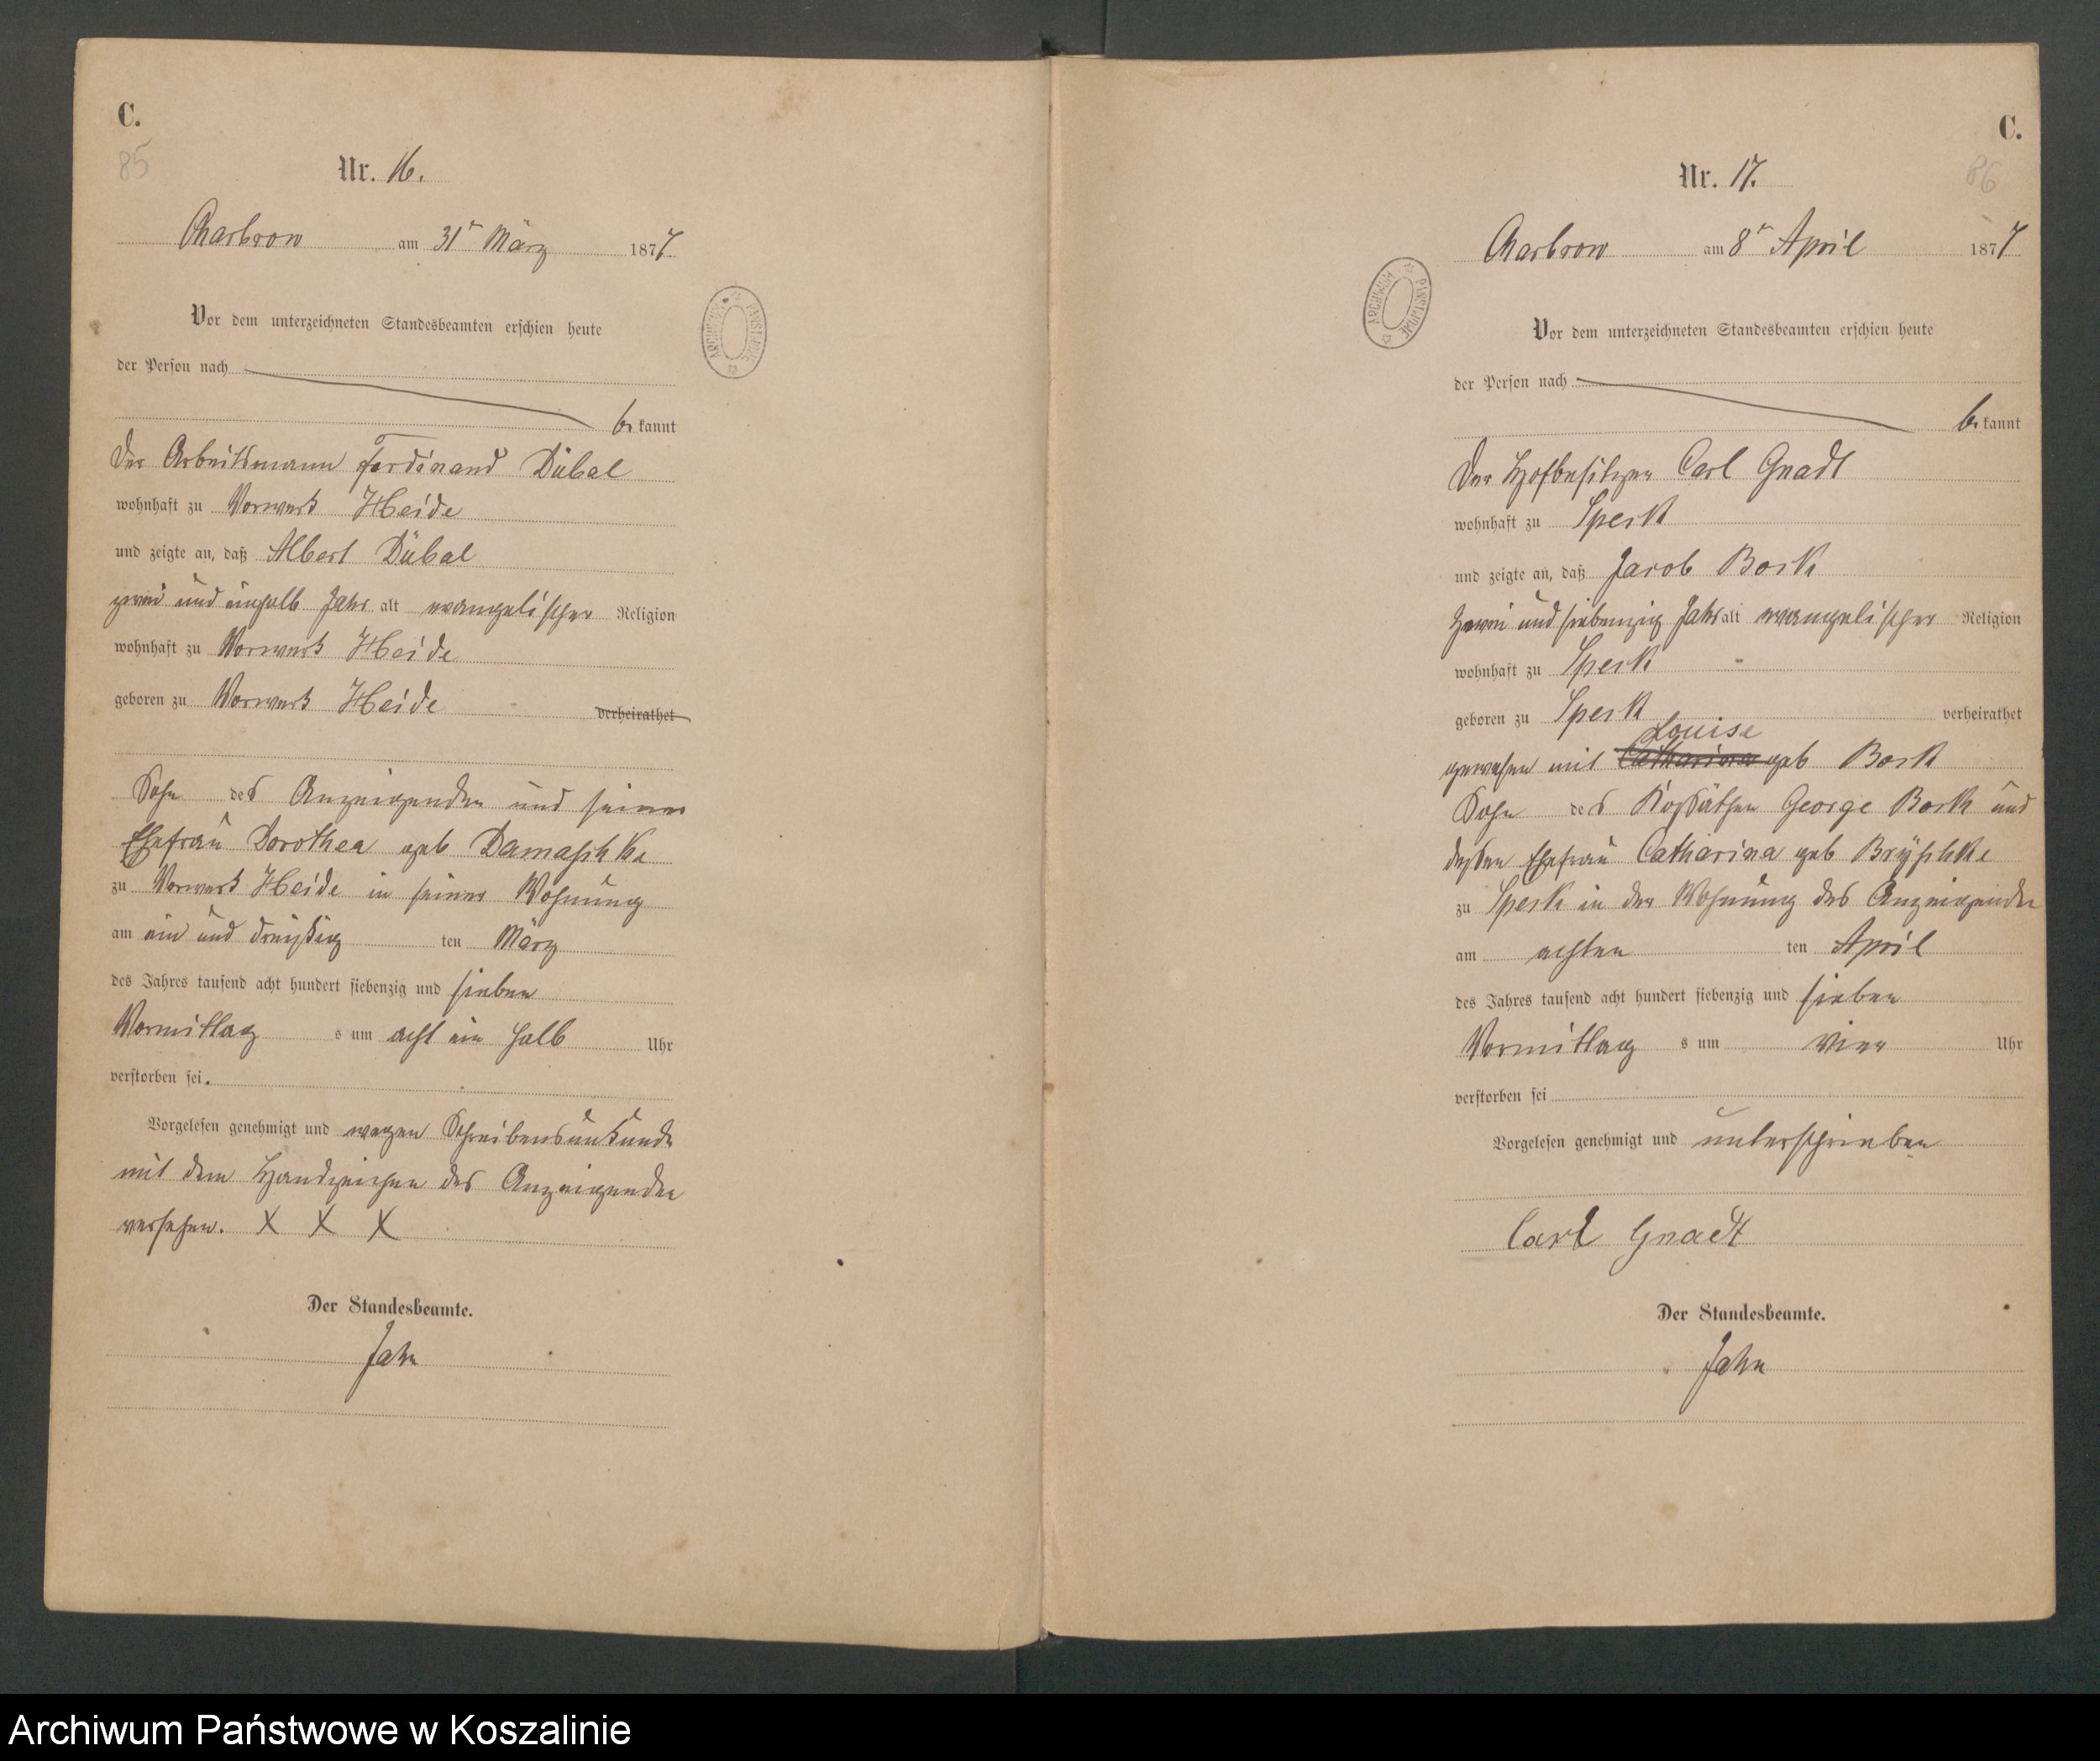 C.
85
Nr. 16.
Charbrow am 31t März 1877
Vor dem unterzeichneten Standesbeamten erschien heute
der Person nach
bekannt
Der Arbeitsmann Ferdinand Dübal
wohnhaft zu Vorwerk Heide
und zeigte an, daß Albert Dübal
zwei und einhalb Jahr alt evangelischer Religion
wohnhaft zu Vorwerk Heide
geboren zu Vorwerk Heide verheirathet
Sohn des Anzeigenden und seiner
Ehefrau Dorothea geb Damaschke
zu Vorwerk Heide in seiner Wohnung
am ein und dreißig ten März
des Jahres tausend acht hundert siebenzig und sieben
Vormittag s um acht ein halb Uhr
verstorben sei.
Vorgelesen genehmigt und wegen Schreibensunkunde
mit dem Handzeichen des Anzeigenden
versehen. X X X
Der Standesbeamte.
Jahn
ARCHIWUM PAŃSTWOWE
C.
86
Nr. 17.
Charbrow am 8t April 1877
Vor dem unterzeichneten Standesbeamten erschien heute
der Person nach
bekannt
Der Hofbesitzer Carl Gnadt
wohnhaft zu Speck
und zeigte an, daß Jacob Bork
Zwei und siebenzig Jahr alt evangelischer Religion
wohnhaft zu Speck
geboren zu Speck verheirathet
Louise
gewesen mit Catharina geb Bork
Sohn des Koßäthen George Bork und
dessen Ehefrau Catharina geb Bryschke
zu Speck in der Wohnung des Anzeigenden
am achten ten April
des Jahres tausend acht hundert siebenzig und sieben
Vormittag s um vier Uhr
verstorben sei
Vorgelesen genehmigt und unterschrieben
Carl Gnadt
Der Standesbeamte.
Jahn
ARCHIWUM PAŃSTWOWE
Archiwum Państwowe w Koszalinie